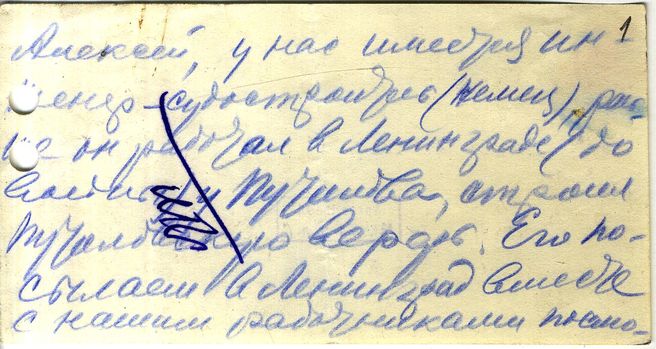 1
Алексей, у нас имеется ин-
женер-судостроитель (немец), ра-
не он работал в Ленинграде до
войны у Путилова, строил
Путиловскую верфь. Его по-
сылаем в Ленинград вместе
с нашими работниками посмо-